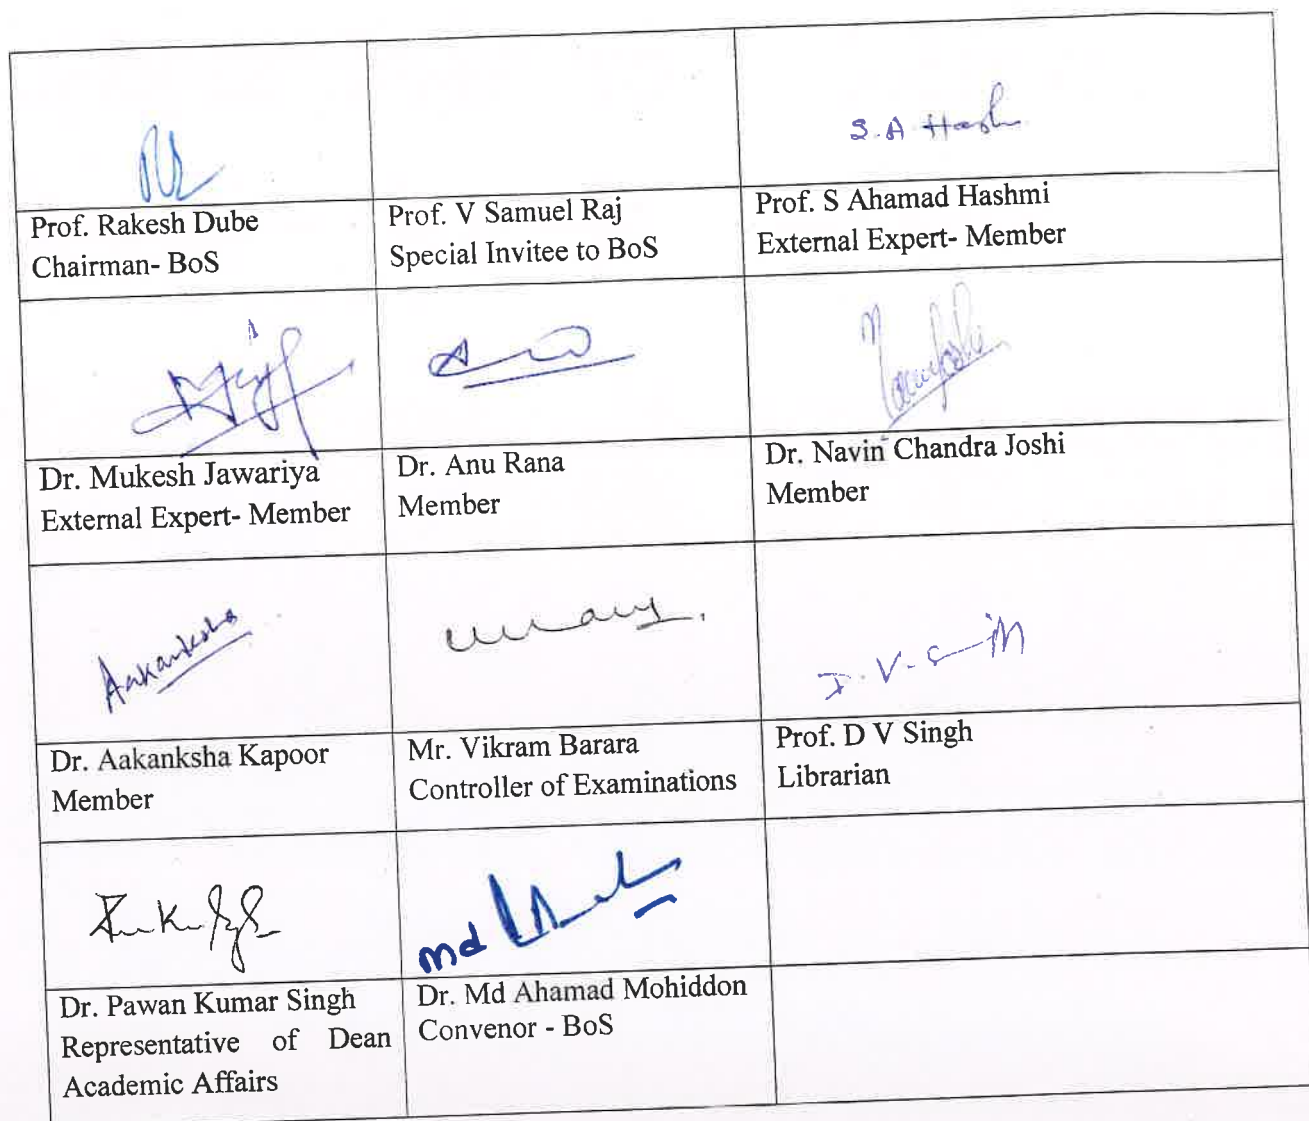 S. A Hash
Prof. Rakesh Dube
Chairman- BoS
Prof. V Samuel Raj
Special Invitee to BoS
Prof. S Ahamad Hashmi
External Expert- Member
Dr. Mukesh Jawariya
External Expert- Member
Dr. Anu Rana
Member
Dr. Navin Chandra Joshi
Member
Aakanksha
Dr. Aakanksha Kapoor
Member
Mr. Vikram Barara
Controller of Examinations
Prof. D V Singh
Librarian
md
Dr. Pawan Kumar Singh
Representative of Dean
Academic Affairs
Dr. Md Ahamad Mohiddon
Convenor - BoS